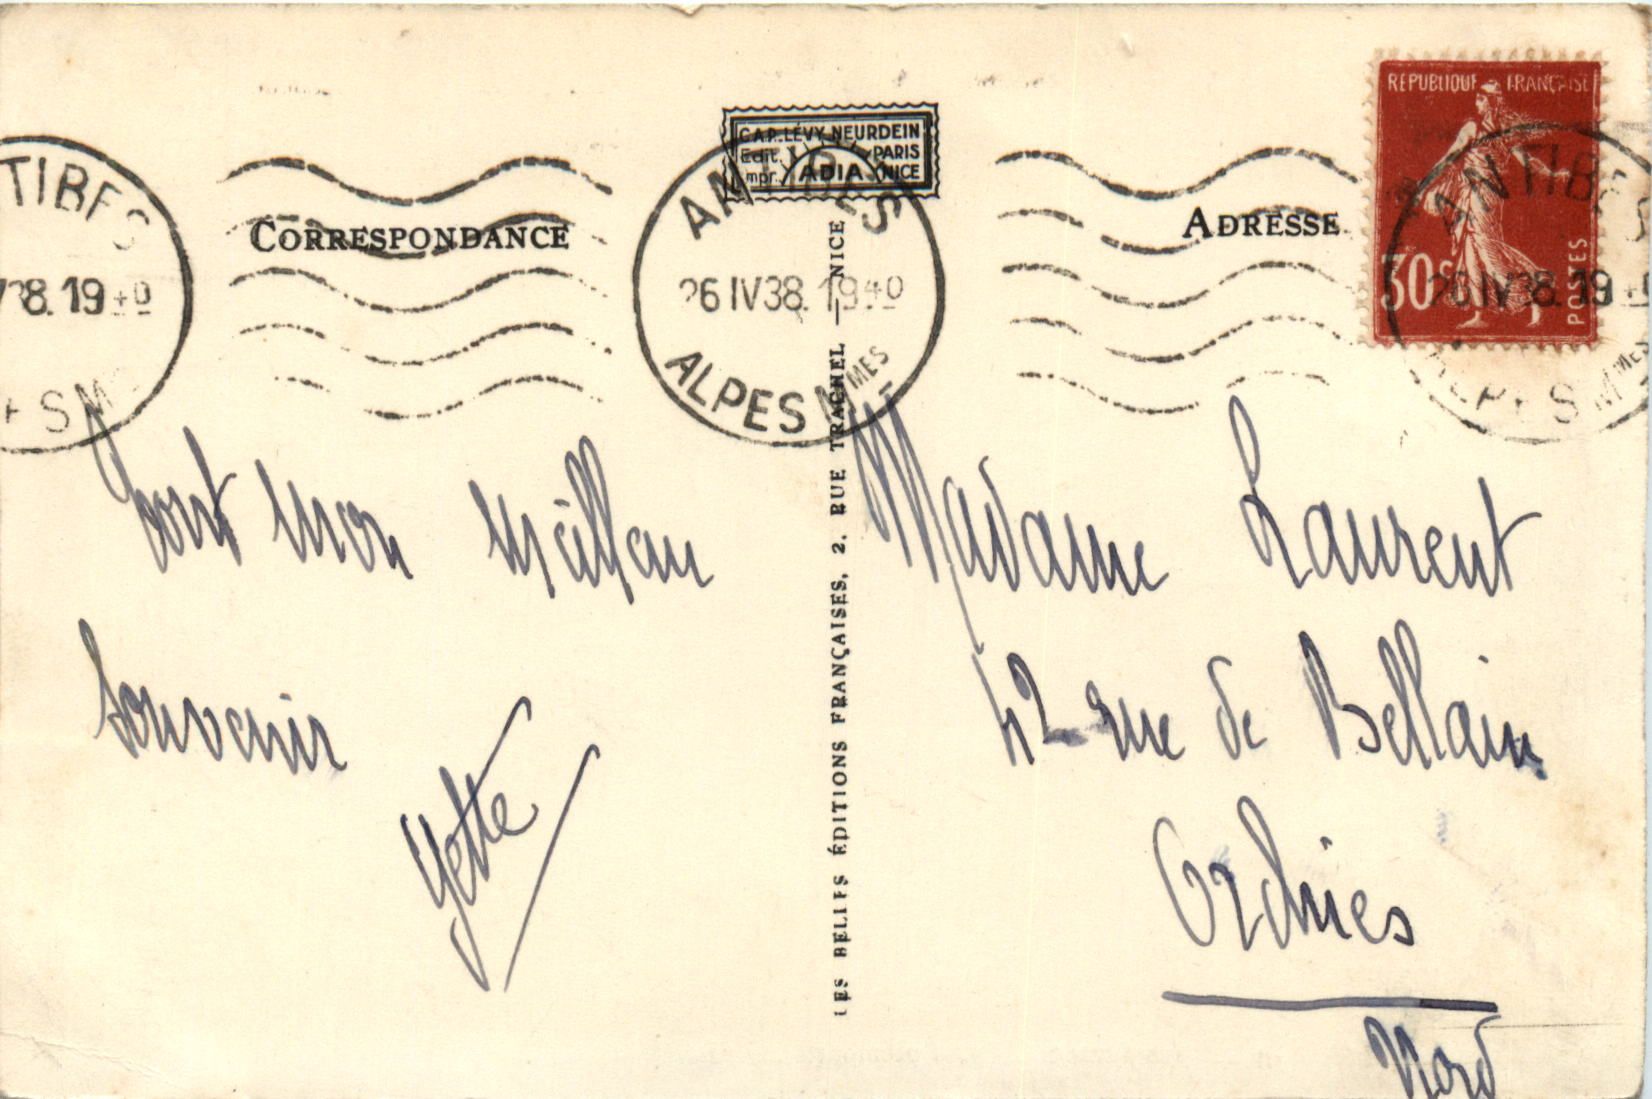 C.A.P. LÉVY NEURDEIN
Edit. PARIS
Impr. ADIA NICE
CORRESPONDANCE
ADRESSE
RÉPUBLIQUE FRANÇAISE
30c
POSTES
TIBES
38. 19 40
ES M
ANTIBES
26 IV 38. 19 40
ALPES MMES
ANTIBES
26 IV 38. 19
ALPES MMES
LES BELLES ÉDITIONS FRANÇAISES, 2, RUE TRACHEL — NICE
tout mon meilleur
souvenir
Yette
Madame Laurent
42 rue de Bellain
Orchies
Nord